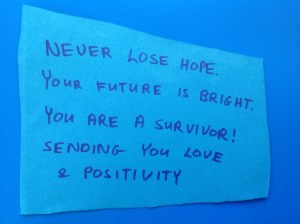 NEVER LOSE HOPE.
YOUR FUTURE IS BRIGHT.
YOU ARE A SURVIVOR!
SENDING YOU LOVE
& POSITIVITY